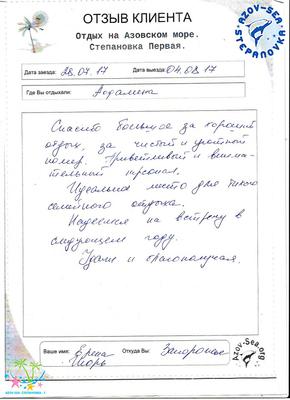 ОТЗЫВ КЛИЕНТА
Отдых на Азовском море.
Степановка Первая.
AZOV-SEA
STEPANOVKA
Дата заезда: 28.07.17 Дата выезда: 04.08.17
Где Вы отдыхали:
Спасибо большое за хороший
отдых, за чистый и уютный
номер. Приветливый и внима-
тельный персонал.
Идеальное место для тихого
семейного отдыха.
Надеемся на встречу в
следующем году.
Удачи и благополучия.
Ваше имя: Елена Откуда Вы: Запорожье
Игорь
Azov-Sea.org